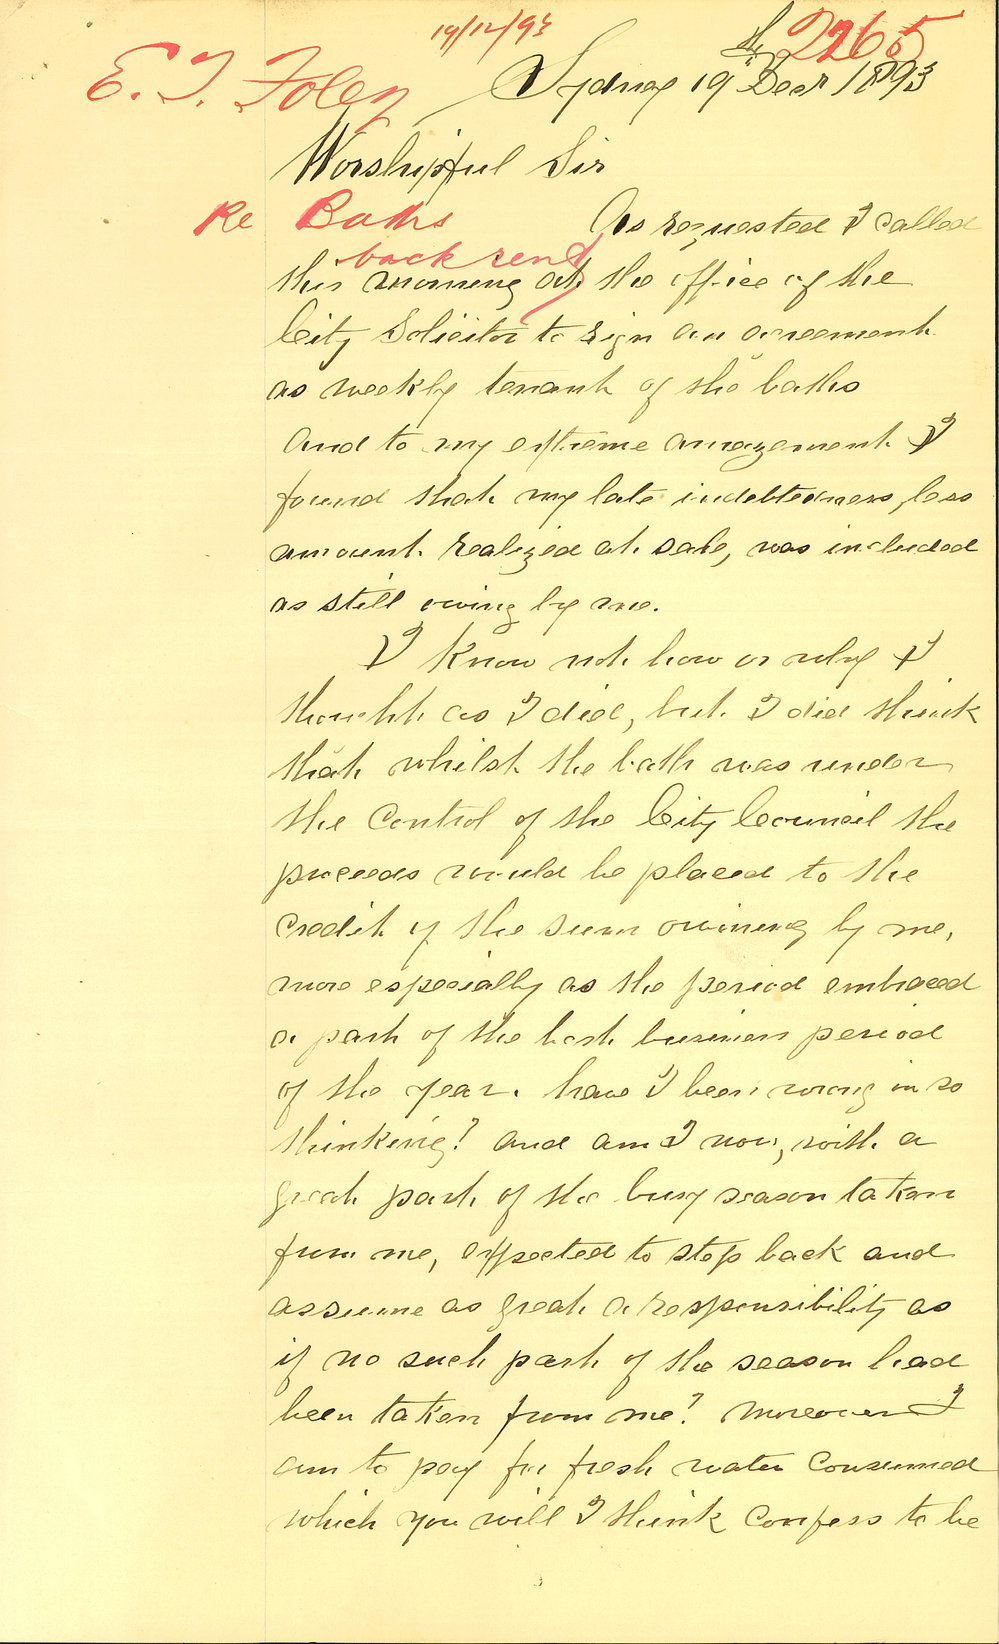 19/12/93
2265
E. T. Foley
Sydney 19 Decr 1893
Worshipful Sir
Re Baths
back rent
As requested I called
this morning at the office of the
City Solicitor to sign an agreement
as weekly tenant of the baths
and to my extreme amazement I
found that my late indebtedness, less
amount realized at sale, was included
as still owing by me.
I know not how or why I
thought as I did, but I did think
that whilst the bath was under
the control of the City Council the
proceeds would be placed to the
credit of the sum owining by me,
more especially as the period embraced
a part of the best business period
of the year. have I been wrong in so
thinking? and am I now, with a
great part of the busy season taken
from me, expected to step back and
assume as great a responsibility as
if no such part of the season had
been taken from me? moreover I
am to pay for fresh water consumed
which you will I think confess to be